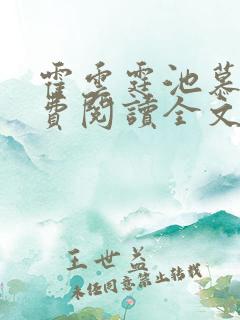 霍雲霆池慕
費閱讀全文
王世益
未經同意禁止轉載